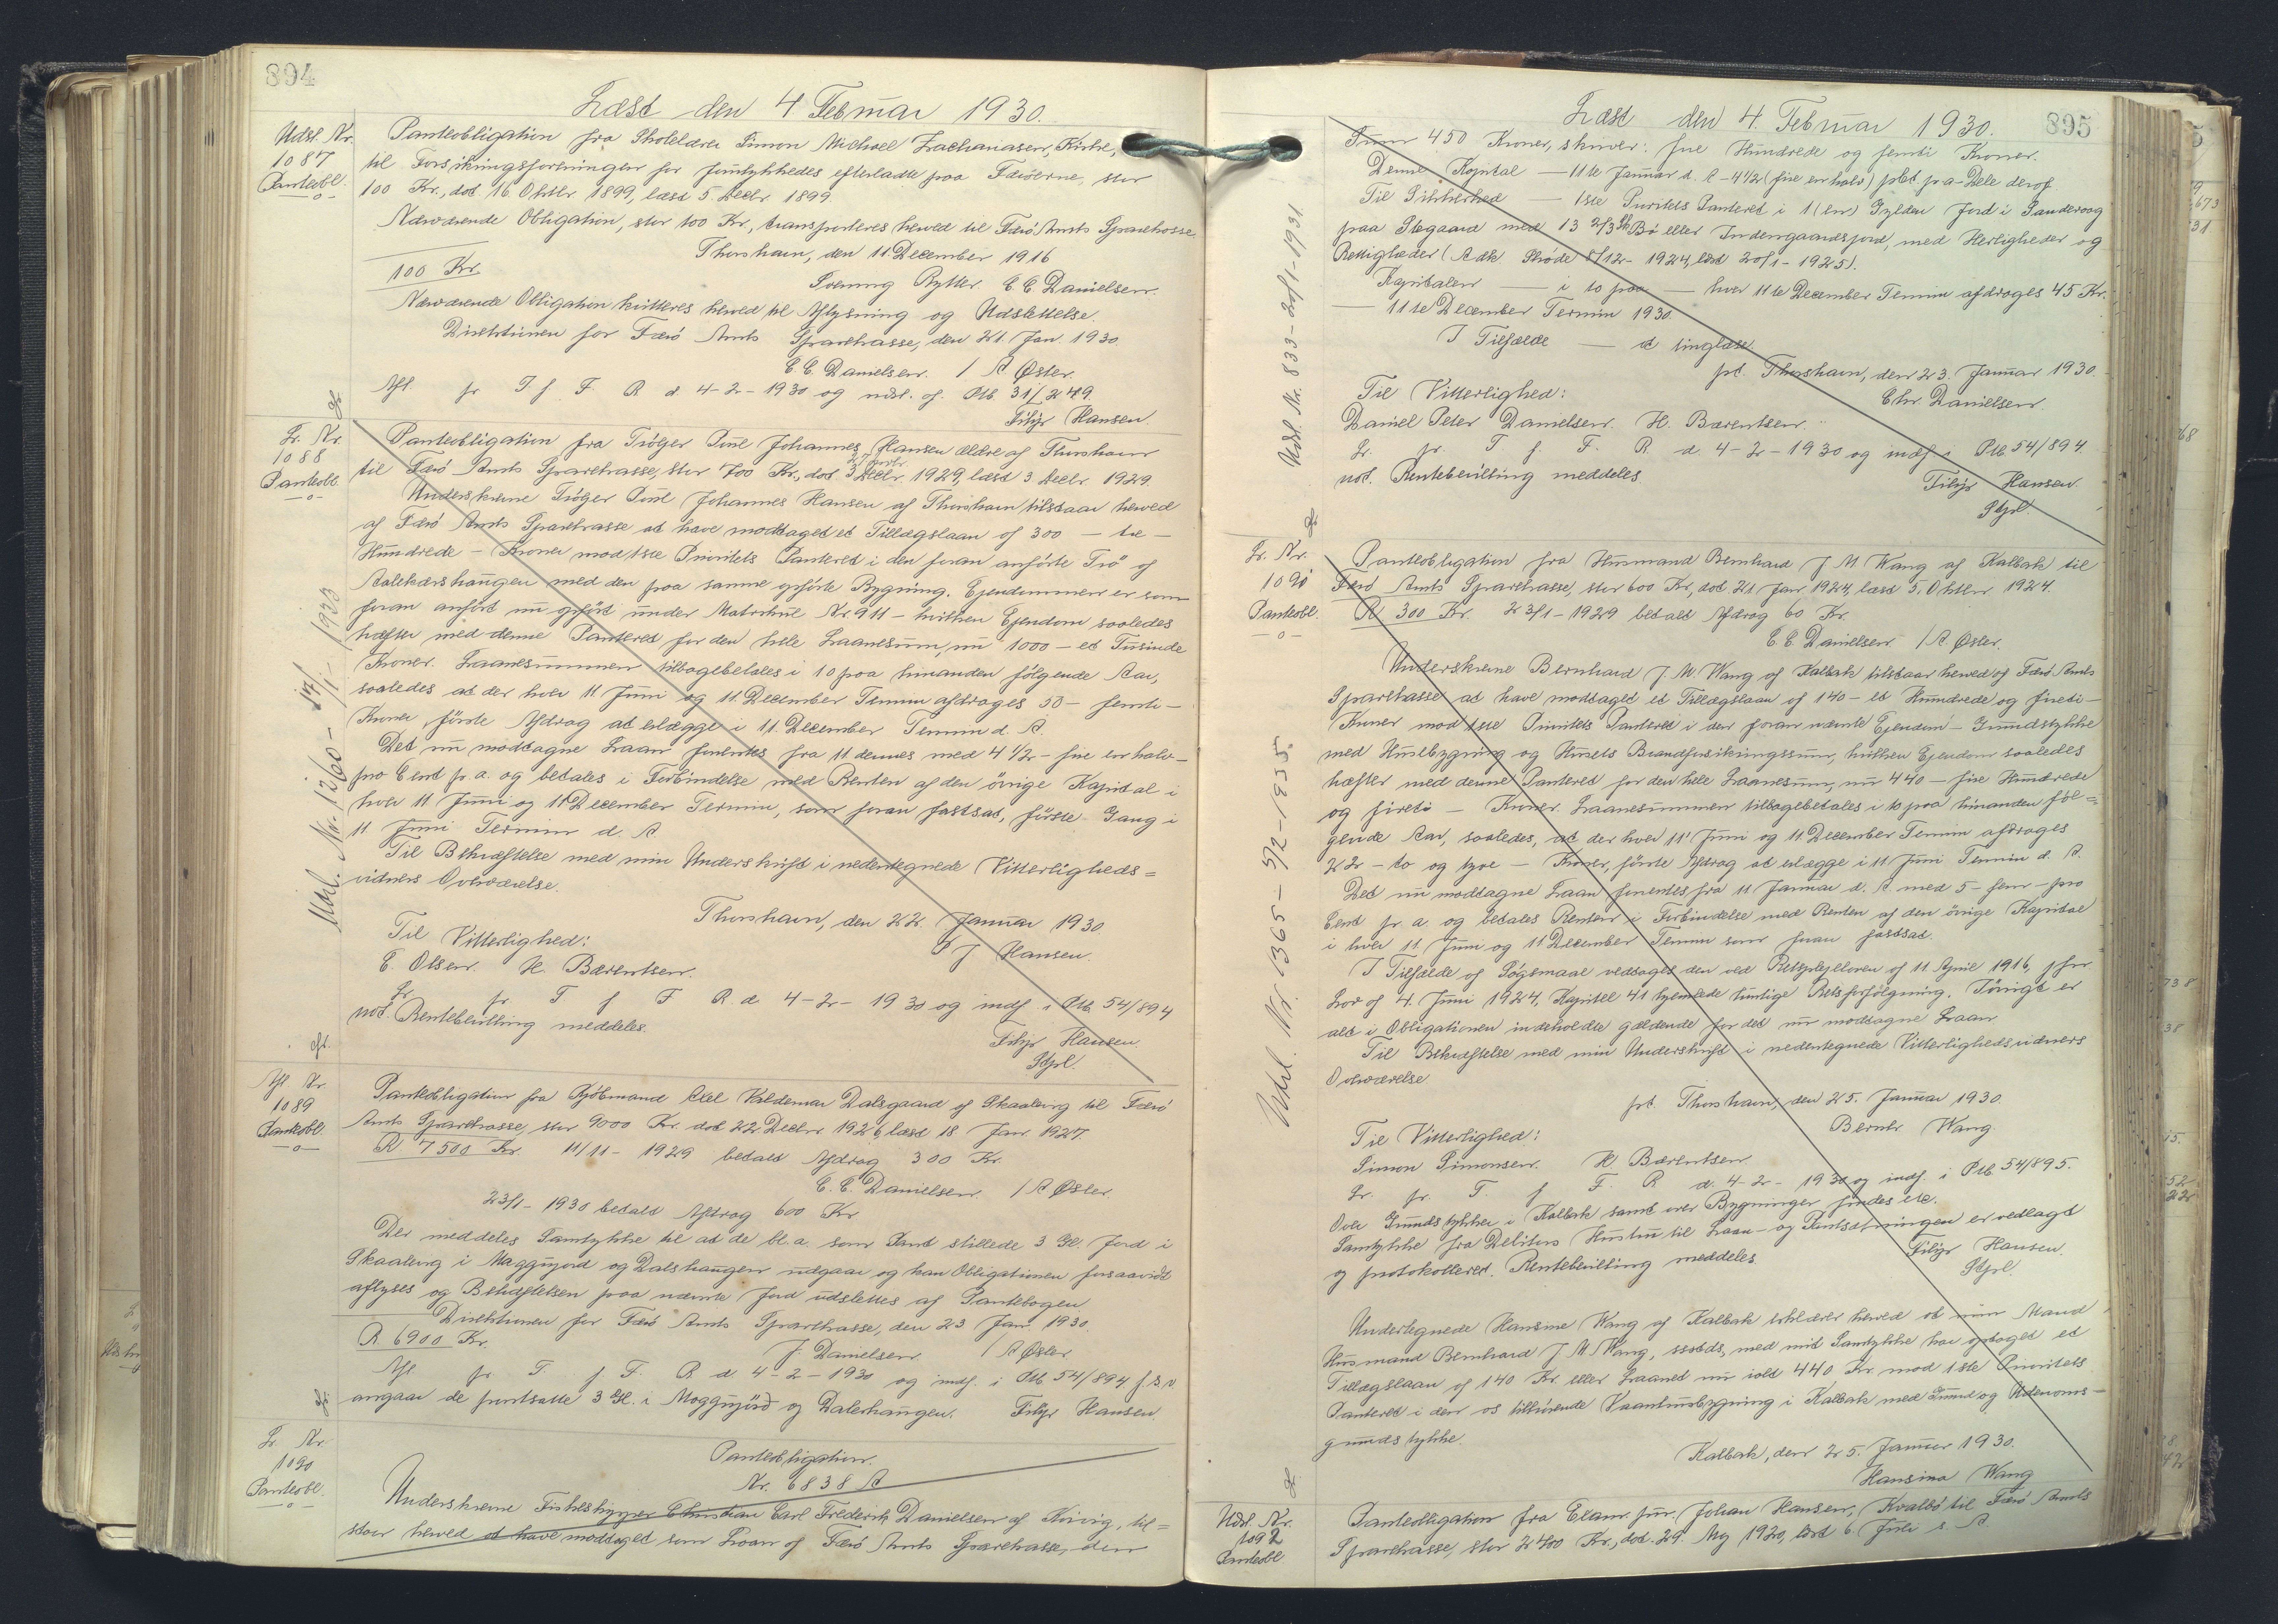 894
Læst den 4 Februar 1930.
Udsl. Nr.
1087
Panteobl.
Panteobligation fra Skolelærer Simon Michael Zachariasen, Kirke,
til Forsikringsforeningen for forulykkedes efterladte paa Færøerne, stor
100 Kr., dat. 16. Oktbr. 1899, læst 5. Decbr. 1899.
Nærværende Obligation, stor 100 Kr., transporteres herved til Færø Amts Sparekasse
Thorshavn, den 11 December 1916
100 Kr.
Svenning Rytter. C C Danielsen.
Nærværende Obligation kvitteres herved til Aflysning og Udslettelse.
Direktionen for Færø Amts Sparekasse, den 21. Jan. 1930.
C C. Danielsen. / A Øster.
Afl. pr T f F R d 4-2-1930 og udsl. af Ptb 31/249.
Filip Hansen.
Lr. Nr.
1088
Panteobl.
Panteobligation fra Trøger Poul Johannes Hansen ældre af Thorshavn
til Færø Amts Sparekasse, stor 700 Kr., dat. 3 Decbr. 1929, læst 3. Decbr. 1929.
Underskrevne Trøger Poul Johannes Hansen af Thorshavn tilstaar herved
af Færø Amts Sparekasse at have modtaget et Tillægslaan af 300 – tre –
Hundrede – Kroner mod 1ste Prioritets Panteret i den foran anførte Trø af
Aalekærshaugen med den paa samme opførte Bygning. Ejendommen er som
foran anført nu opført under Matrikul Nr. 911 – hvilken Ejendom saaledes
hæfter med denne Panteret for den hele Laanesum, nu 1000 – et Tusinde
Kroner. Laanesummen tilbagebetales i 10 paa hinanden følgende Aar,
saaledes at der hver 11 Juni og 11 December Termin afdrages 50 – femti –
Kroner, første Afdrag at erlægge i 11. December Termin d. A.
Det nu modtagne Laan forrentes fra 11 dennes med 4 1/2 – fire en halv –
pro Cent pr a. og betales i Forbindelse med Renten af den øvrige Kapital i
hver 11 Juni og 11 December Termin, som foran fastsat, første Gang i
11 Juni Termin d. A
Til Bekræftelse med min Underskrift i nedentegnede Vitterligheds=
vidners Overværelse.
Thorshavn, den 22. Januar 1930
Til Vitterlighed:
P J Hansen.
E. Olsen. H. Bærentsen.
Lr. pr T f F R. d 4-2-1930 og indf. i Ptb. 54/894
not. Rentebevilling meddeles.
Filip Hansen.
Stpl.
Udsl. Nr. 1360 – 17/1-1933
Afl Nr
1089
Panteobl
Panteobligation fra Købmand Axel Valdemar Dalsgaard af Skaalevig til Færø
Amts Sparekasse, stor 9000 Kr. dat 22 Decbr 1926, læst 18 Jan. 1927.
R 7500 Kr. 11/11-1929 betalt Afdrag 300 Kr.
C. C. Danielsen / A Øster.
23/1-1930 betalt Afdrag 600 Kr
Der meddeles Samtykke til at de bl.a. som Pant stillede 3 Gl. Jord i
Skaalevig i Maggujord og Dalshaugen udgaar og kan Obligationen forsaavidt
aflyses og Behæftelsen paa nævnte Jord udslettes af Pantebogen
Direktionen for Færø Amts Sparekasse, den 23 Jan. 1930.
R 6900 Kr.
J. Danielsen / A Øster
Afl. pr T. f F. R d 4-2-1930 og indf. i Ptb 54/894 f.s.v
angaar de pantsatte 3 Gl. i Maggujord og Dalerhaugen. Filip Hansen.
Lr. Nr.
1090
Panteobl.
Panteobligation.
Nr. 6838 A
Underskrevne Fiskeskipper Christian Carl Frederik Danielsen af Kvivig, til=
staar herved at have modtaget som Laan af Færø Amts Sparekasse, den
895
Læst den 4. Februar 1930.
Sum 450 Kroner, skriver: fire Hundrede og femti Kroner.
Denne Kapital – 11te Januar d. A – 4 1/2 (fire en halv) pCt. p a – Dele deraf
Til Sikkerhed – 1ste Prioritets Panteret i 1 (en) Gylden Jord i Sandevaag
paa Stegaard med 13 2/3 Sk Bø eller Indengaardsjord, med Herligheder og
Rettigheder (Adk. Skøde 5/12-1924, læst 20/1-1925).
Kapitalen – i 10 paa – hver 11te December Termin afdrages 45 Kr.
– 11te December Termin 1930.
I Tilfælde – at tinglæse.
pt. Thorshavn, den 23. Januar 1930.
Til Vitterlighed:
Chr. Danielsen.
Daniel Peter Danielsen. H. Bærentsen.
Lr. pr. T. f. F. R d 4-2-1930 og indf i Ptb 54/894.
not. Rentebevilling meddeles.
Filip Hansen.
Stpl.
Udsl. Nr. 833 – 20/1-1931
Lr. Nr.
1091
Panteobl.
Panteobligation fra Husmand Bernhard J M Wang af Kalbak til
Færø Amts Sparekasse, stor 600 Kr, dat 21 Jan 1924, læst 3. Oktbr 1924.
R 300 Kr. 23/1-1929 betalt Afdrag 60 Kr.
C. C. Danielsen / A Øster.
Underskrevne Bernhard J. M. Wang af Kalbak tilstaar herved af Færø Amts
Sparekasse at have modtaget et Tillægslaan af 140 – et Hundrede og fireti –
Kroner mod 1ste Prioritets Panteret i den foran nævnte Ejendom – Grundstykke
med Husbygning og Husets Brandforsikringssum, hvilken Ejendom saaledes
hæfter med denne Panteret for den hele Laanesum, nu 440 – fire Hundrede
og fireti – Kroner. Laanesummen tilbagebetales i 10 paa hinanden føl=
gende Aar, saaledes, at der hver 11' Juni og 11 December Termin afdrages
22 – to og tyve – Kroner, første Afdrag at erlægge i 11. Juni Termin d. A.
Det nu modtagne Laan forrentes fra 11 Januar d. A. med 5 – fem – pro
Cent pr a og betales Renten i Forbindelse med Renten af den øvrige Kapital
i hver 11. Juni og 11 December Termin som foran fastsat.
I Tilfælde af Søgsmaal vedtages den ved Retsplejeloven af 11 April 1916, jfr
Lov af 4. Juni 1924, Kapitel 41 hjemlede hurtige Retsforfølgning. Iøvrigt er
alt i Obligationen indeholdte gældende for det nu modtagne Laan
Til Bekræftelse med min Underskrift i nedentegnede Vitterlighedsvidners
Overværelse
pt. Thorshavn, den 25. Januar 1930.
Til Vitterlighed:
Bernh Wang.
Simon Simonsen. H Bærentsen
Lr. pr. T. f F. R d. 4-2-1930 og indf. i Ptb 54/895.
Over Grundstykker i Kalbak samt over Bygninger findes etc.
Samtykke fra Debitors Hustru til Laan- og Pantsætningen er vedlagt
og protokolleret. Rentebevilling meddeles
Filip Hansen.
Stpl.
Udsl. Nr. 1365 – 5/2-1935
Undertegnede Hansine Wang af Kalbak erklærer herved at min Mand
Husmand Bernhard J M Wang, sstds, med mit Samtykke har optaget et
Tillægslaan af 140 Kr. eller Laanet nu ialt 440 Kr. mod 1ste Prioritets
Panteret i den os tilhørende Vaanhusbygning i Kalbak med Grund og Udenoms-
grundstykke.
Kalbak, den 25. Januar 1930.
Hansina Wang
Udsl. Nr.
1092
Panteobl
Panteobligation fra Exam. jur. Johan Hansen, Kvalbø til Færø Amts
Sparekasse, stor 2400 Kr., dat. 29. Maj 1920, læst 6. Juli s. A